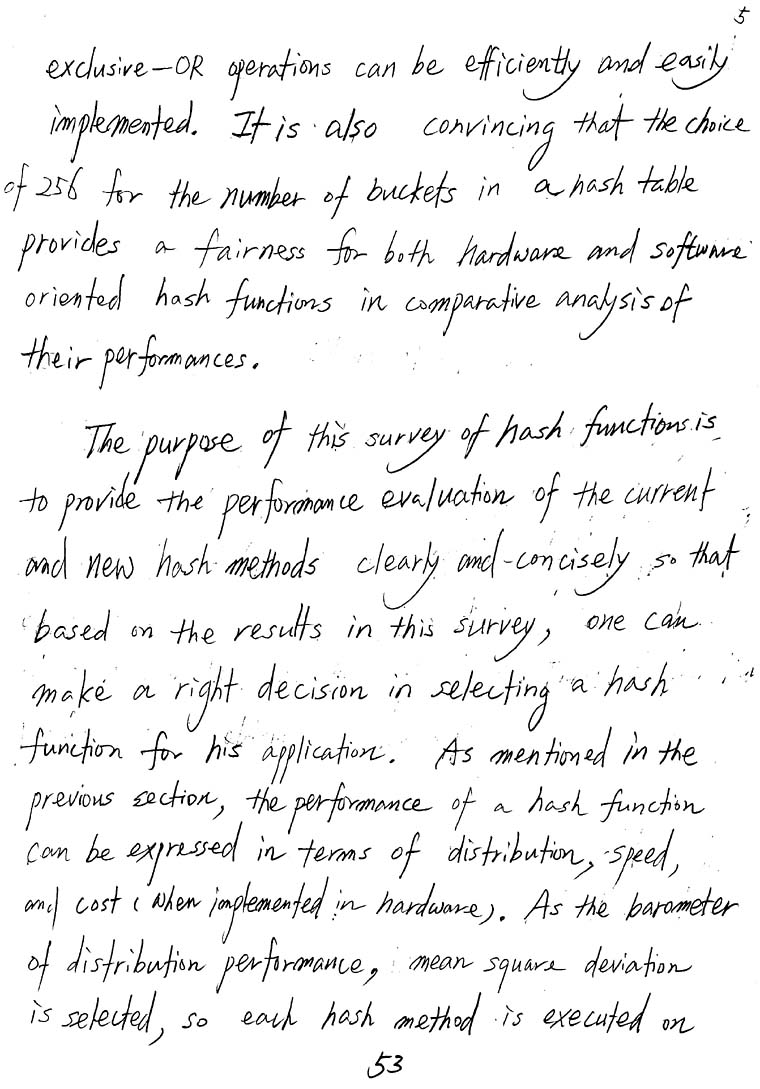 5
exclusive-OR operations can be efficiently and easily
implemented. It is also convincing that the choice
of 256 for the number of buckets in a hash table
provides a fairness for both hardware and software
oriented hash functions in comparative analysis of
their performances.
The purpose of this survey of hash functions is
to provide the performance evaluation of the current
and new hash methods clearly and concisely so that
based on the results in this survey, one can
make a right decision in selecting a hash
function for his application. As mentioned in the
previous section, the performance of a hash function
can be expressed in terms of distribution, speed,
and cost (when implemented in hardware). As the barometer
of distribution performance, mean square deviation
is selected, so each hash method is executed on
53